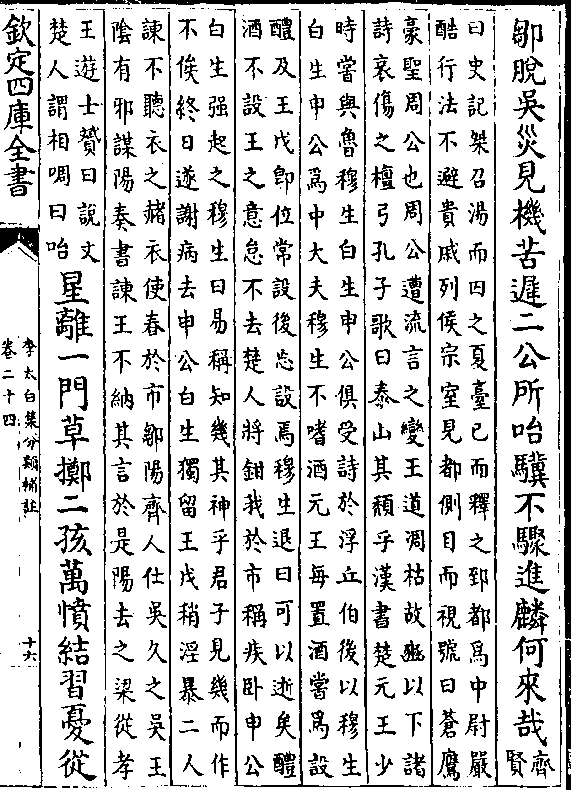 鄒脫吳災見機苦遲二公所咍驥不驟進麟何來哉齊
賢
曰史記桀召湯而囚之夏臺已而釋之郅都為中尉嚴
酷行法不避貴戚列侯宗室見都側目而視號曰蒼鷹
豪聖周公也周公遭流言之變王道凋枯故豳以下諸
詩哀傷之檀弓孔子歌曰泰山其頽乎漢書楚元王少
時嘗與魯穆生白生申公俱受詩於浮丘伯後以穆生
白生申公為中大夫穆生不嗜酒元王每置酒嘗為設
醴及王戊即位常設後忘設焉穆生退曰可以逝矣醴
酒不設王之意怠不去楚人將鉗我於市稱疾卧申公
白生强起之穆生曰易稱知幾其神乎君子見幾而作
不俟終日遂謝病去申公白生獨留王戊稍淫暴二人
諫不聽衣之赭衣使舂於市鄒陽齊人仕吳久之吳王
陰有邪謀陽奏書諫王不納其言於是陽去之梁從孝
王遊士贇曰說文
楚人謂相啁曰咍
星離一門草擲二孩萬憤結習憂從
欽定四庫全書
李太白集分類補註
卷二十四
十六